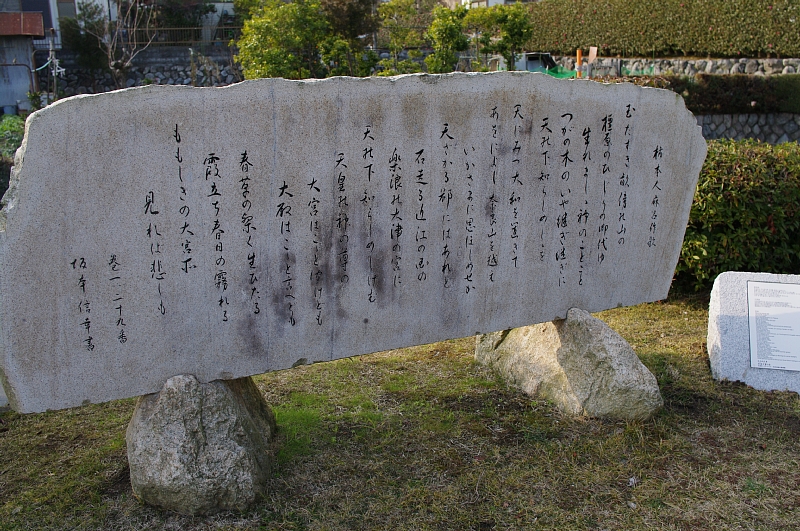 柿本人麻呂作歌
玉たすき畝傍乃山の
橿原のひじりの御代ゆ
生れましゝ神のことごと
つがの木のいや継ぎ継ぎに
天乃下知らしめしゝを
天にみつ大和を置きて
あをによし奈良山を越え
いかさまに思ほしめせか
天ざかる鄙にはあれど
石走る近江の国の
楽浪乃大津の宮に
天乃下知らしめしけむ
天皇乃神の尊の
大宮はこゝと聞けども
大殿はこゝと言へども
春草の繁く生ひたる
霞立ち春日の霧れる
ももしきの大宮所
見れば悲しも
巻一 二十九番
坂本信幸書